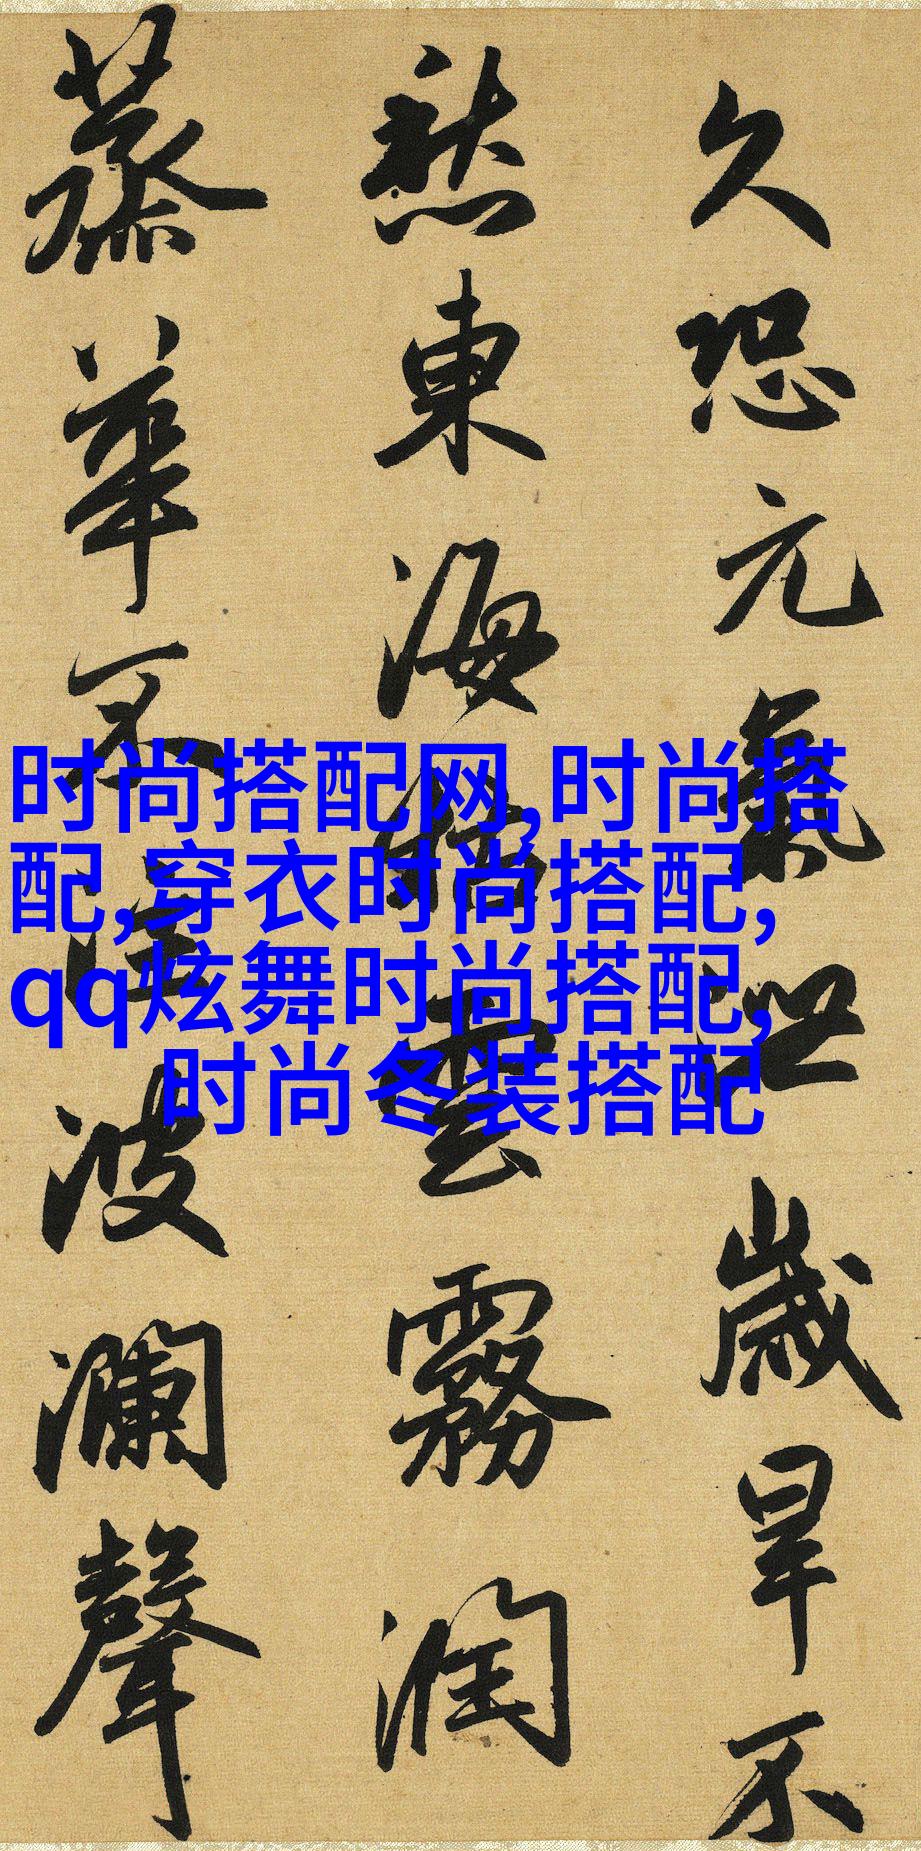 久恐元氣泄歲旱不
愁東海枯雲霧潤
蒸華不注波瀾聲
时尚搭配网,时尚搭
配,穿衣时尚搭配,
qq炫舞时尚搭配,
时尚冬装搭配